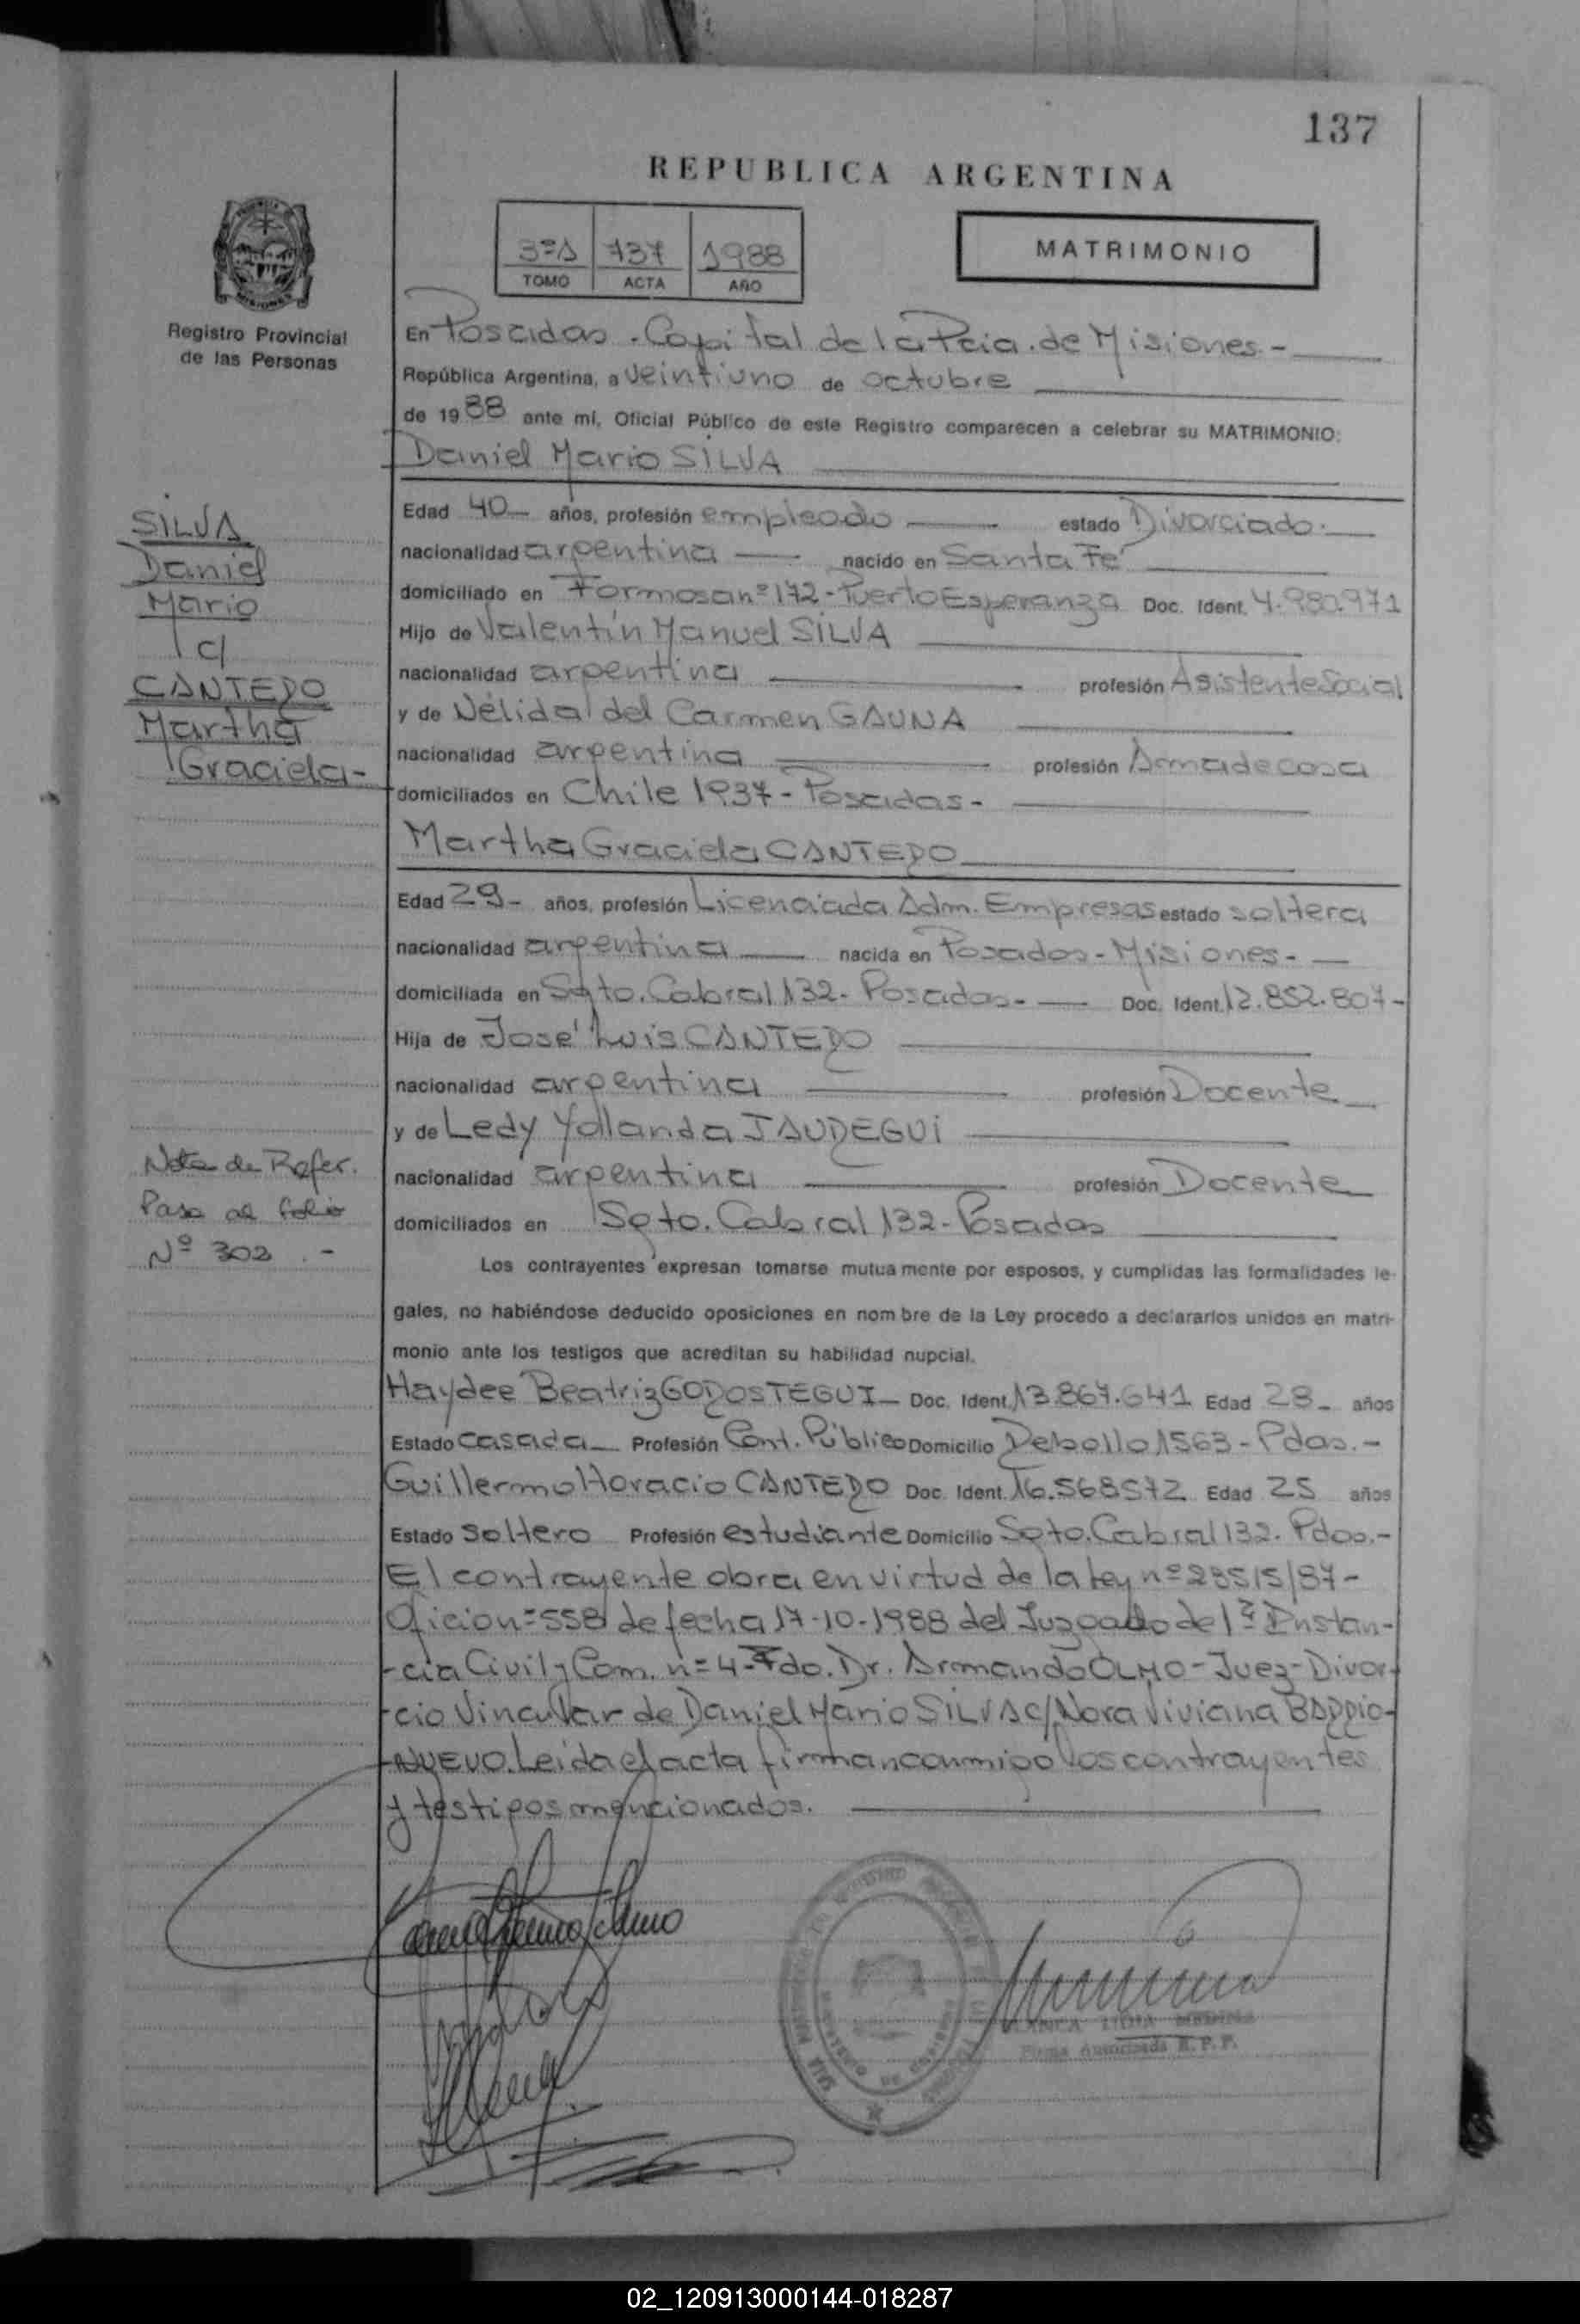 137
REPUBLICA ARGENTINA
3º A 737 1988
TOMO ACTA AÑO
MATRIMONIO
Registro Provincial
de las Personas
En Posadas. Capital de la Pcia. de Misiones.-
República Argentina, a veintiuno de octubre
de 1988 ante mí, Oficial Público de este Registro comparecen a celebrar su MATRIMONIO:
Daniel Mario SILVA
Edad 40 años, profesión empleado estado Divorciado.
nacionalidad argentina nacido en Santa Fé
domiciliado en Formosa nº 172-Puerto Esperanza Doc. Ident. 4.980.971
Hijo de Valentín Manuel SILVA
nacionalidad argentina profesión Asistente Social
y de Nélida del Carmen GAUNA
nacionalidad argentina profesión Ama de casa
domiciliados en Chile 1937-Posadas-
SILVA
Daniel
Mario
c/
CANTERO
Martha
Graciela-
Martha Graciela CANTERO
Edad 29- años, profesión Licenciada Adm. Empresas estado soltera
nacionalidad argentina nacida en Posadas-Misiones-
domiciliada en Sgto. Cabral 132- Posadas- Doc. Ident. 12.852.807-
Hija de José Luis CANTERO
nacionalidad argentina profesión Docente
y de Ledy Yollanda JAUREGUI
nacionalidad argentina profesión Docente
domiciliados en Sgto. Cabral 132-Posadas
Nota de Refer.
Pasa al folio
Nº 302.-
Los contrayentes expresan tomarse mutuamente por esposos, y cumplidas las formalidades le-
gales, no habiéndose deducido oposiciones en nombre de la Ley procedo a declararlos unidos en matri-
monio ante los testigos que acreditan su habilidad nupcial.
Haydee Beatriz GOROSTEGUI Doc. Ident. 13.867.641 Edad 28- años
Estado casada Profesión Cont. Público Domicilio Rebollo 1563-Pdas.-
Guillermo Horacio CANTERO Doc. Ident. 16.568572 Edad 25 años
Estado soltero Profesión estudiante Domicilio Sgto. Cabral 132. Pdas.-
El contrayente obra en virtud de la Ley nº 23515/87-
Oficio nº 558 de fecha 17-10-1988 del Juzgado de 1ª Instan-
-cia Civil y Com. nº 4-Fdo. Dr. Armando OLMO-Juez-Divor-
-cio Vincular de Daniel Mario SILVA c/Nora Viviana BARRIO-
-NUEVO. Leída el acta firman conmigo los contrayentes
y testigos mencionados.
BLANCA LIDIA MEDINA
Firma Autorizada R. P. P.
02_120913000144-018287